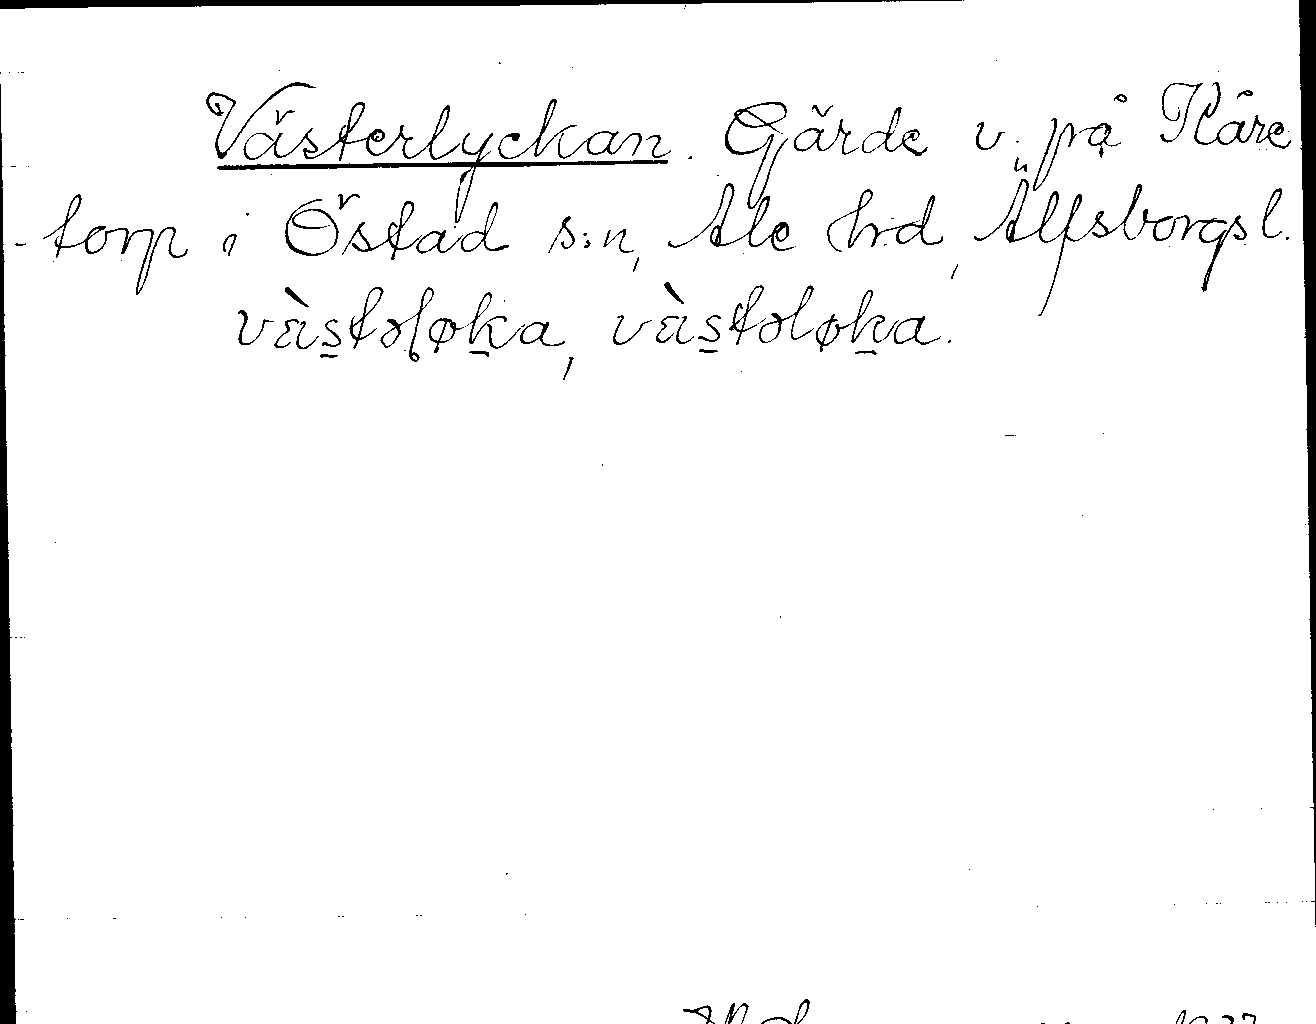 Västerlyckan. Gärde v. på Kåre
-torp i Östad s:n, Ale hrd, Älfsborgs l.
vὰs̠təɭøk̠a, vὰs̠təløk̠a.